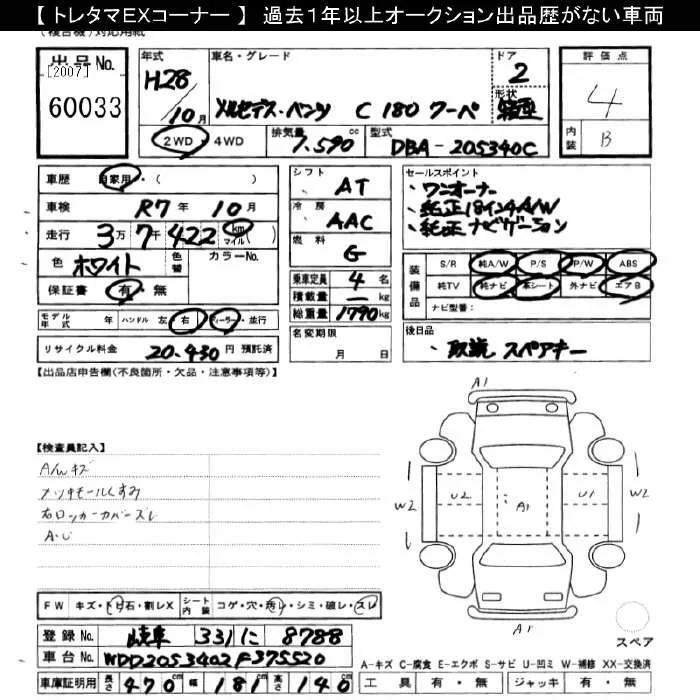 【 トレタマEXコーナー 】 過去1年以上オークション出品歴がない車両
(複合機)対応用紙
出品No.
[2007]
60033
年式 車名・グレード ドア 評価点
H28 2
10月 メルセデス・ベンツ C 180 クーペ 形状 4
2WD・4WD 排気量 1.590 cc 型式 DBA-205340C 内装 B
車歴 自家用・( )
車検 R7年 10月
走行 3万 7千 422 km マイル( )
色 ホワイト 色替 カラーNo.
保証書 有・無
モデル年式 年 ハンドル 左 右 ディーラー・並行
リサイクル料金 20.430円 預託済
シフト AT
冷房 AAC
燃料 G
乗車定員 4名
積載量 — kg
総重量 1790 kg
名変期限 月 日
セールスポイント
・ワンオーナー
・純正18インチA/W
・純正ナビゲーション
装備品 S/R 純A/W P/S P/W ABS
純TV 純ナビ 革シート 外ナビ エアB
ナビ型番:
後日品
取説 スペアキー
【出品店申告欄(不良箇所・欠品・注意事項等)】
【検査員記入】
A/Wキズ
メッキモールくすみ
右ロッカーカバーズレ
A・U
A1
W2 U2 A1 U1 W2
A1
スペア
FW キズ・トビ石・割レX シート内装 コゲ・穴・汚レ・シミ・破レ・スレ
登録No. 岐阜 331 に 8788
車台No. WDD2053402F375520
車庫証明用 長さ 470cm 幅 181cm 高さ 140cm
A-キズ C-腐食 E-エクボ S-サビ U-凹ミ W-補修 XX-交換済
工具 有・無 ジャッキ 有・無